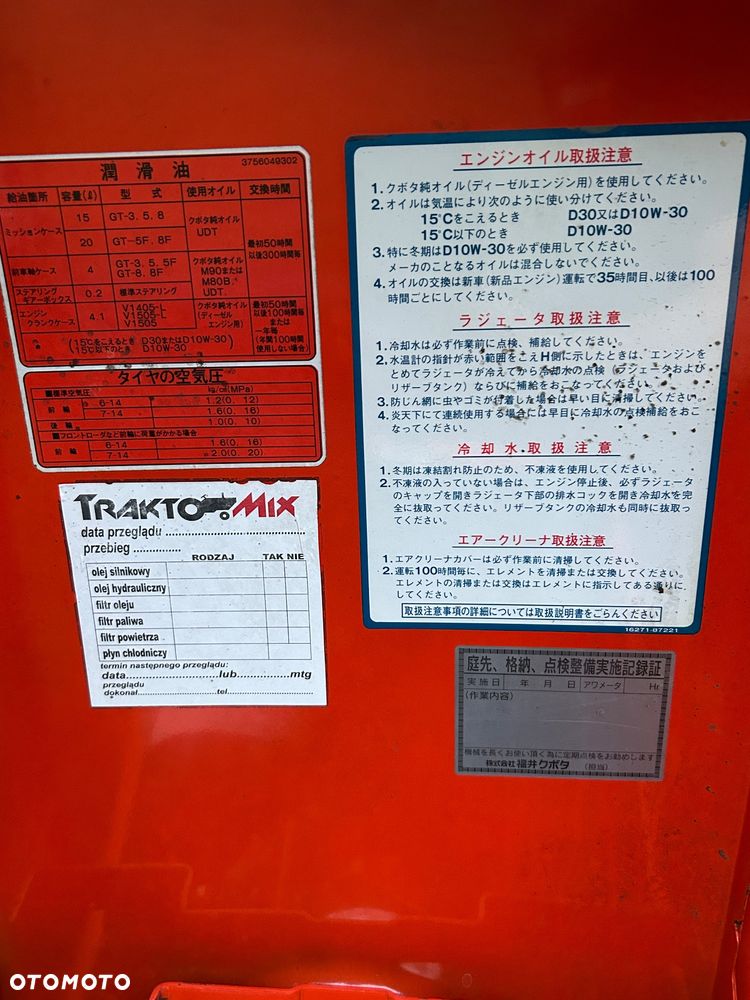 潤滑油 3756049302
給油箇所 容量(ℓ) 型式 使用オイル 交換時間
ミッションケース 15 GT-3.5.8 クボタ純オイル UDT 最初50時間 以後300時間毎
20 GT-5F.8F
前車軸ケース 4 GT-3.5.5F GT-8.8F クボタ純オイル M90または M80B.
ステアリング ギアーボックス 0.2 標準ステアリング UDT.
エンジン クランクケース 4.1 V1405-L V1505-L V1505 クボタ純オイル (ディーゼル エンジン用) 最初50時間 以後100時間毎 または 一年毎 (年間100時間 使用しない場合)
(15℃をこえるとき D30またはD10W-30)
15℃以下のとき D10W-30
タイヤの空気圧
■標準空気圧 kg/c㎡(MPa)
前輪 6-14 1.2(0.12)
7-14 1.6(0.16)
後輪 1.0(0.10)
■フロントローダなど前輪に荷重がかかる場合
前輪 6-14 1.6(0.16)
7-14 2.0(0.20)
TRAKTOMIX
data przeglądu
przebieg
RODZAJ TAK NIE
olej silnikowy
olej hydrauliczny
filtr oleju
filtr paliwa
filtr powietrza
płyn chłodniczy
termin następnego przeglądu:
data lub mtg
przeglądu
dokonał tel.
エンジンオイル取扱注意
1.クボタ純オイル(ディーゼルエンジン用)を使用してください。
2.オイルは気温により次のように使い分けてください。
15℃をこえるとき D30又はD10W-30
15℃以下のとき D10W-30
3.特に冬期はD10W-30を必ず使用してください。
メーカのことなるオイルは混合しないでください。
4.オイルの交換は新車(新品エンジン)運転で35時間目、以後は100
時間ごとにしてください。
ラジェータ取扱注意
1.冷却水は必ず作業前に点検、補給してください。
2.水温計の指針が赤い範囲をこえH側に示したときは、エンジンを
とめてラジェータが冷えてから冷却水の点検(ラジェータおよび
リザーブタンク)ならびに補給をおこなってください。
3.防じん網に虫やゴミが付着した場合は早い目に清掃してください。
4.炎天下にて連続使用する場合には早目に冷却水の点検補給をおこ
なってください。
冷却水取扱注意
1.冬期は凍結割れ防止のため、不凍液を使用してください。
2.不凍液の入っていない場合は、エンジン停止後、必ずラジェータ
のキャップを開きラジェータ下部の排水コックを開き冷却水を完
全に抜取ってください。リザーブタンクの冷却水も同時に抜取っ
てください。
エアークリーナ取扱注意
1.エアクリーナカバーは必ず作業前に清掃してください。
2.運転100時間毎に、エレメントを清掃または交換してください。
エレメントの清掃または交換はエレメントに指示してある通りに
してください。
取扱注意事項の詳細については取扱説明書をごらんください
16271-87221
庭先、格納、点検整備実施記録証
実施日 年 月 日 アワメータ Hr
(作業内容)
機械を長くお使い頂く為に定期点検をお勧めします
株式会社 福井クボタ (担当)
OTOMOTO